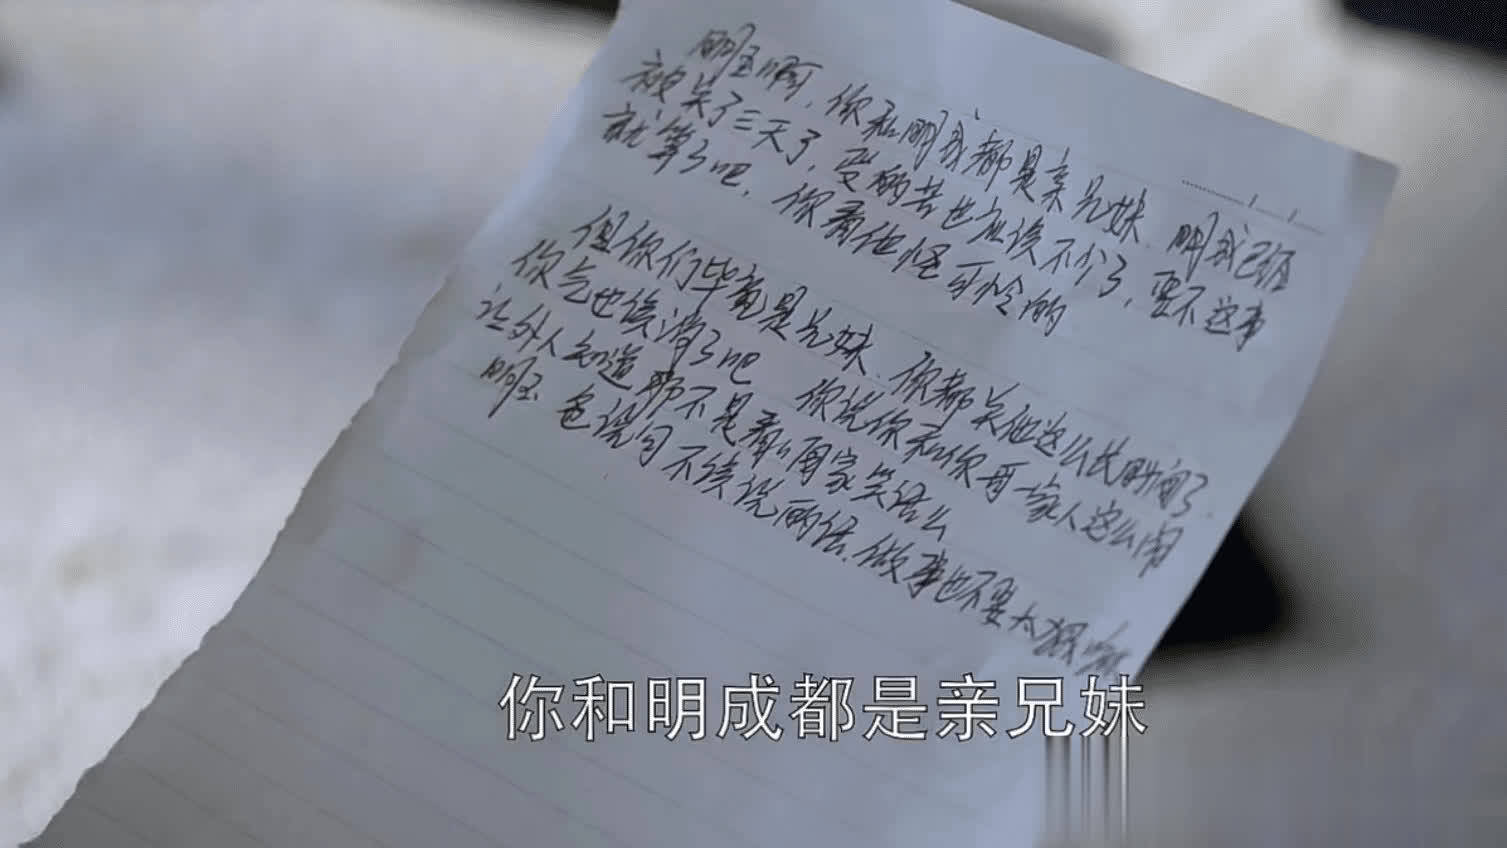 明玉啊，你和明成都是亲兄妹、明成已经
被关了三天了，受的苦也应该不少了，要不这事
就算了吧，你看他怪可怜的
但你们毕竟是兄妹、你都关他这么长时间了、
你气也该消了吧 你说你和你哥一家人这么闹
让外人知道那不是看咱家笑话么
明玉、爸说句不该说的话、做事也不要太狠
你和明成都是亲兄妹